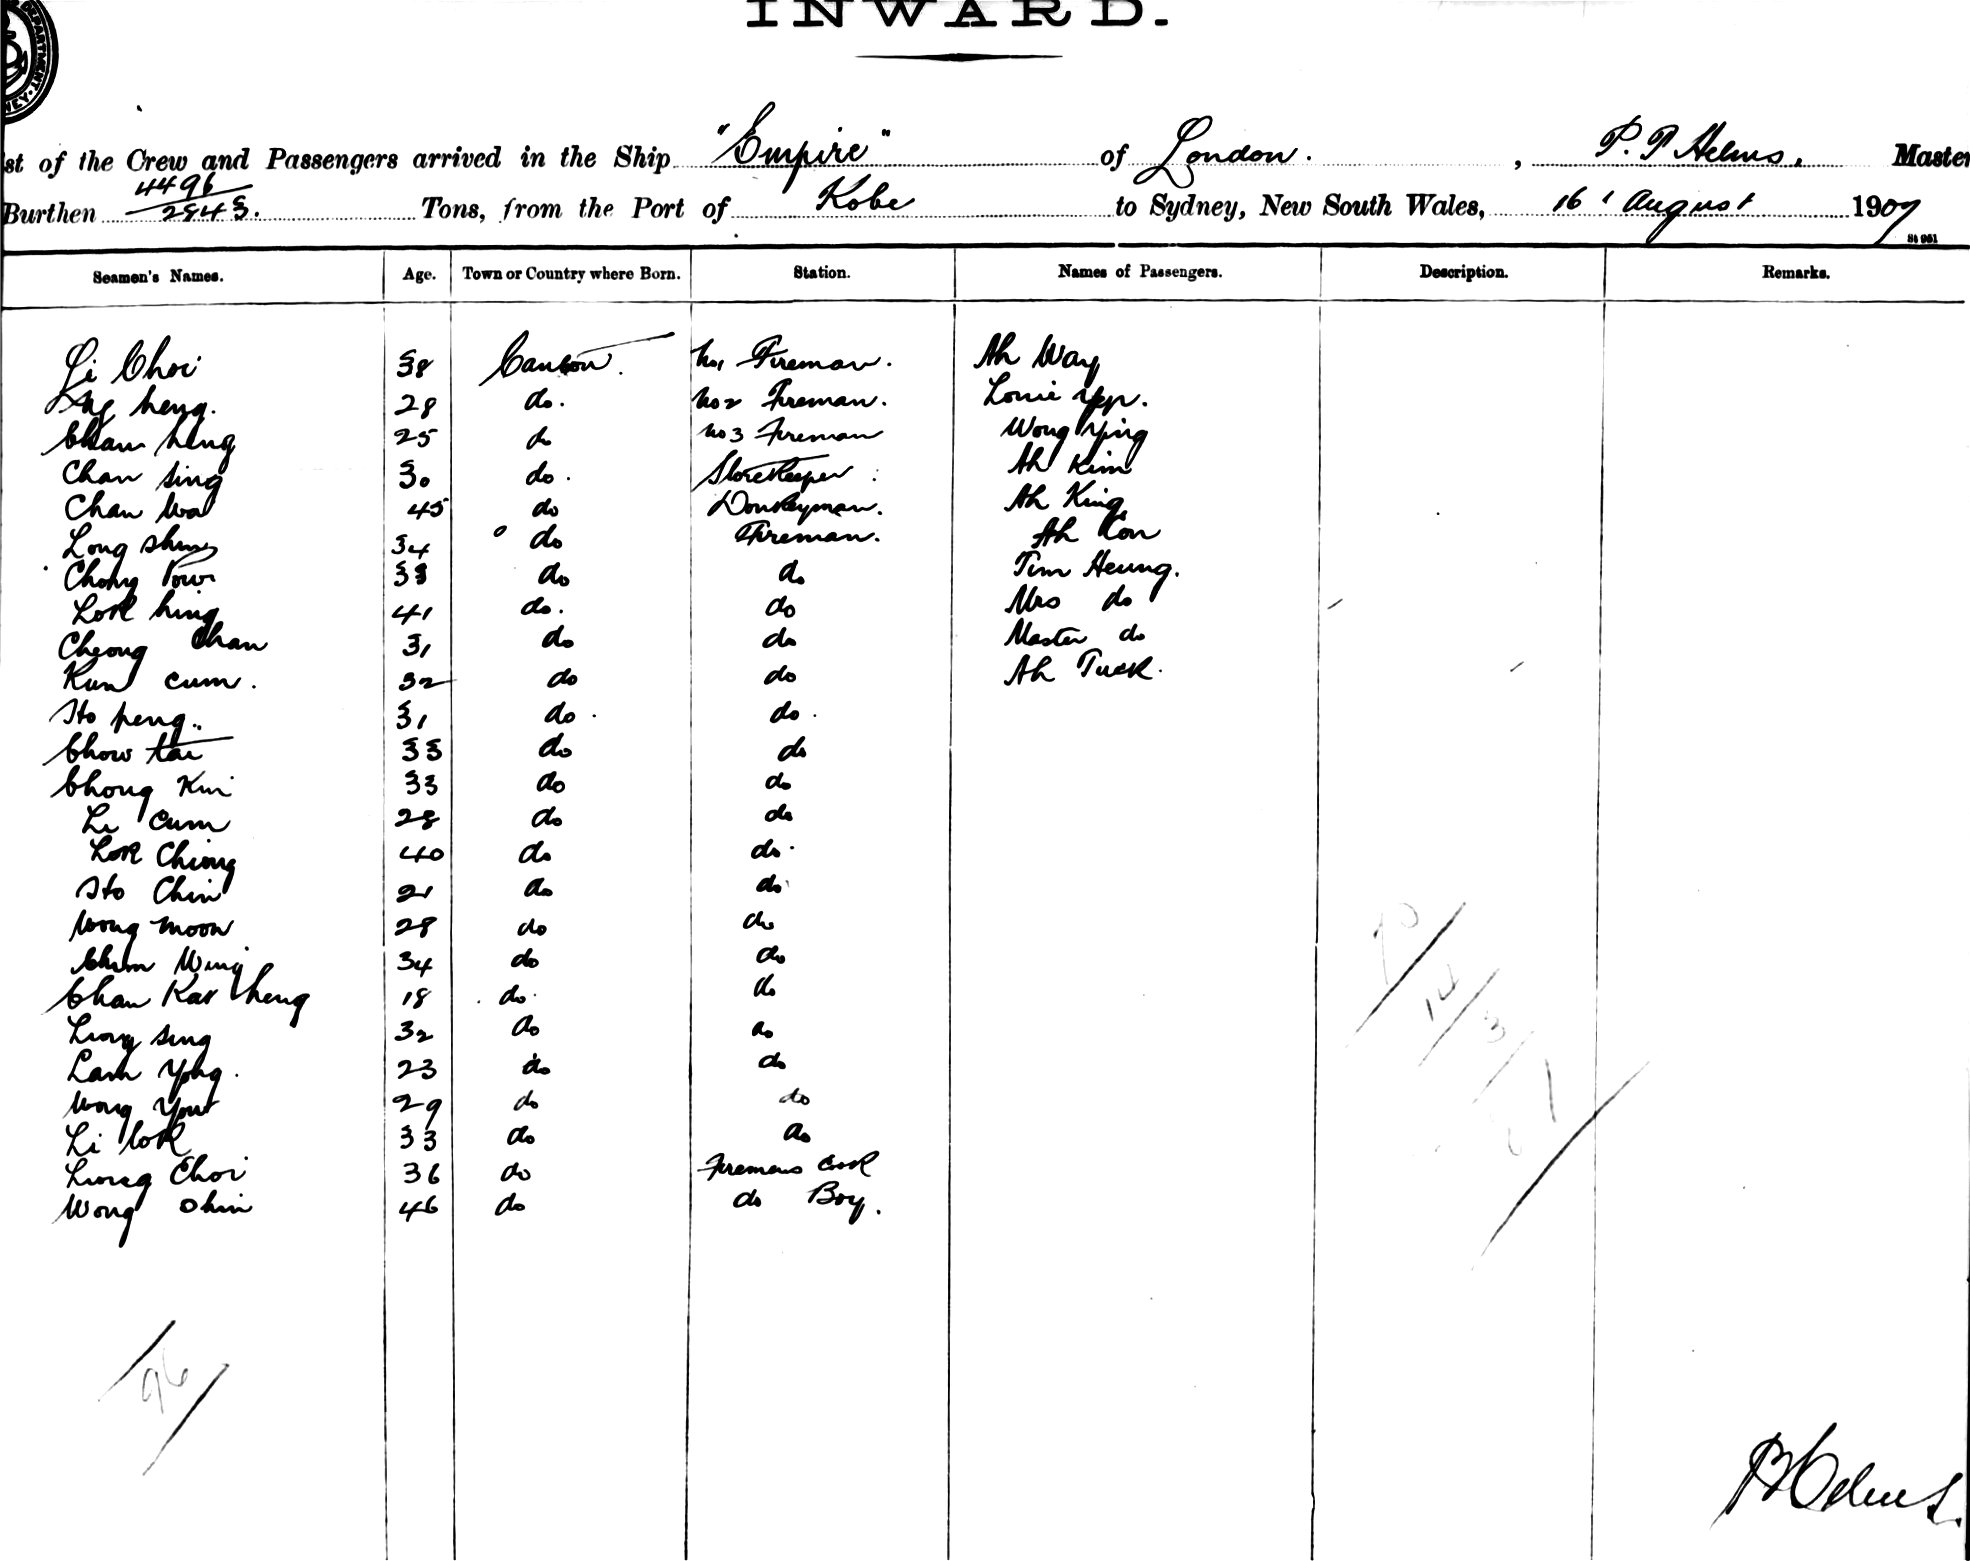 INWARD.
st of the Crew and Passengers arrived in the Ship "Empire" of London. , P. P Helms, Master
4496
Burthen 2843. Tons, from the Port of Kobe to Sydney, New South Wales, 16 August 1907
Seamen's Names. Age. Town or Country where Born. Station. Names of Passengers. Description. Remarks.
Li Choi 38 Canton. No 1 Fireman. Ah Way
Ng heng. 28 do. No 2 Fireman. Louie Ypp.
Chan heng 25 do No 3 Fireman Wong Ying
Chan Sing 30 do. Storekeeper Ah Kim
Chan Wa 45 do Donkeyman. Ah King
Long 34 do Fireman. Ah Con
Chong Pow 33 do do Tim Heung.
Lok hing 41 do. do Mrs do
Cheong Chan 31 do do Master do
Kun cum. 32 do do Ah Tuck.
Ho peng. 31 do. do.
Chow tai 33 do do
Chong Kui 33 do do
Li cum 28 do do
Lok Chiong 40 do do.
Ho Chin 21 do do
Wong moon 28 do do
Chim Wing 34 do do
Chan Kar heng 18 do. do
Liong sing 32 do do
Lam Yong. 23 do do
Wong You 29 do do
Li lok 33 do do
Liong Choi 36 do Firemans Cook
Wong Chin 46 do do Boy.
96